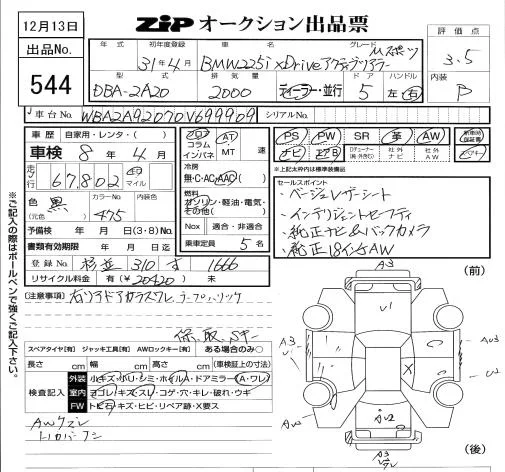 12月13日
ZiP オークション出品票
出品No.
544
年式 初年度登録 車名 グレード
31年4月 BMW225i xDriveアクティブツアラー Mスポーツ
型式 排気量 ドア ハンドル
DBA-2A20 2000 ディーラー・並行 5 左・右
評価点
3.5
内装
B
車台No. WBA2A92070V699909 シリアルNo.
車歴 自家用・レンタ・( )
車検 8年4月
走行 67,802 キロ マイル
色 黒 (元色) カラーNo. 475
予備検 年 月 日(3・8)No.
書類有効期限 年 月 日迄
登録No. 杉並 310 す 1666
リサイクル料金 有(¥20420) 未
フロア コラム インパネ
AT MT 速
冷房
無・C・AC・AAC
燃料
ガソリン・軽油・電気・その他( )
Nox 適合・非適合
乗車定員 5名
PS PW SR 革 AW 新車時保証書
ナビ エアB DチューナーR(純・外含む) 社外ナビ 社外AW 記録簿
※上記太わ枠は標準装備品
セールスポイント
・ベージュレザーシート
・インテリジェントセーフティ
・純正ナビ&バックカメラ
・純正18インチAW
注意事項 右リアドアガラスワレ テープハリツケ
保、取、Sキー
スペアタイヤ[有] ジャッキ工具[有] AWロックキー[有] ある場合のみ〇
長さ cm 幅 cm 高さ cm (車検証上の寸法)
検査記入
外装 小キズ・小U・シミ・ホイルA・ドアミラー(A・ワレ)
室内 ヨゴレ・キズ・スレ・コゲ・穴・キレ・破れ・ウキ
FW トビ石・キズ・ヒビ・リペア跡・X要ス
AWクズレ
(前)
A3
U1
A3
A3
U1
U2
X
AW
AU2
A3
ワレ
(後)
※ご記入の際はボールペンで強くご記入下さい。